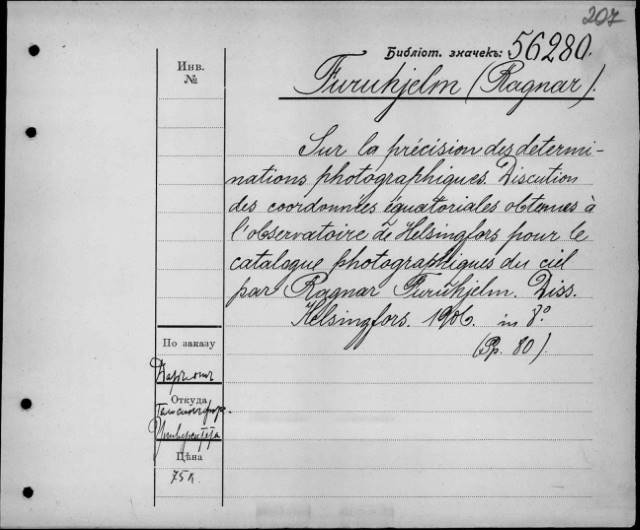 207
Библіот. значекъ: 56280.
Инв.
№
Furuhjelm (Ragnar).
Sur la précision des determi-
nations photographiques. Discution
des coordonnées équatoriales obtenues à
l'observatoire de Helsingfors pour le
catalogue photographiques du ciel
par Ragnar Furuhjelm. Diss.
Helsingfors. 1906. in 8°.
(Pp. 80).
По заказу
Откуда
Университета
Цѣна
75 к